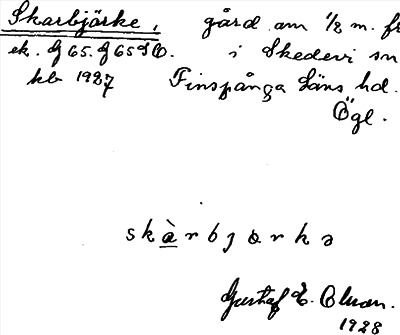 Skarbjärke, gård om 1/2 m. fr
ek. J 65. J 65 SO. i Skedevi sn
kb 1927 Finspånga läns hd.
Ögl.
skàrbjørkə
Gustaf E. Olson.
1928